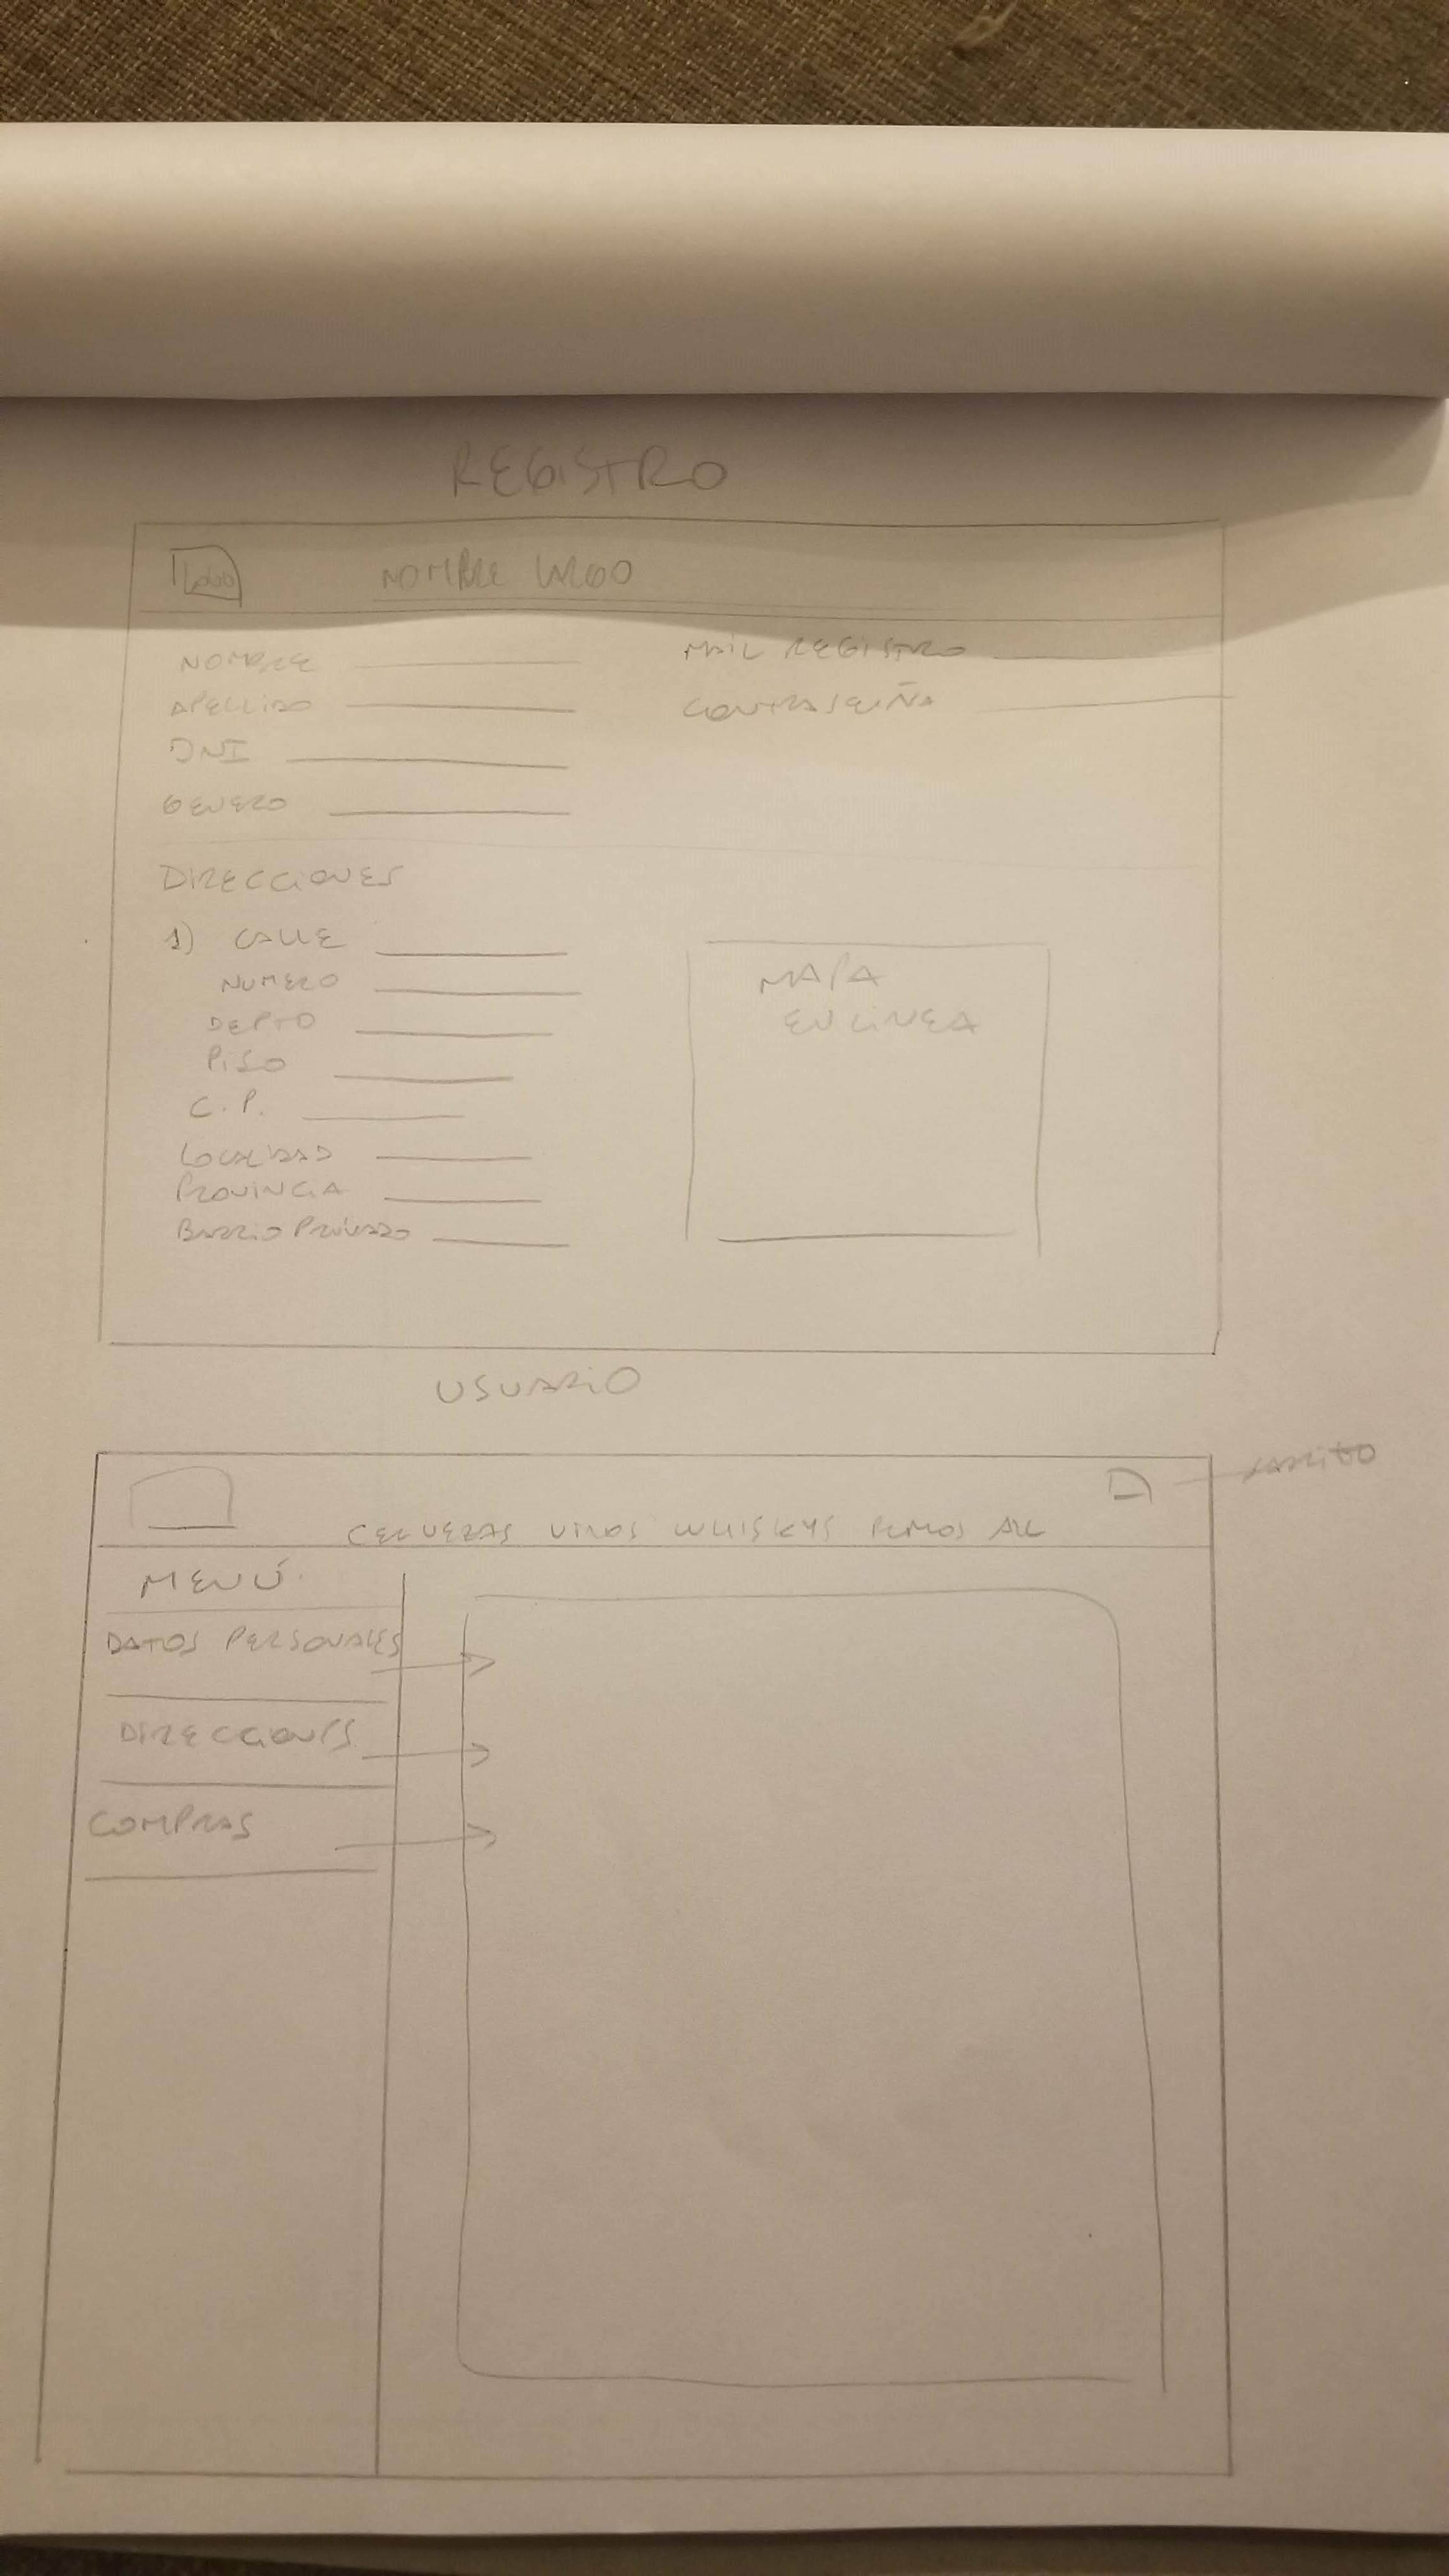 REGISTRO
LOGO
NOMBRE LARGO
NOMBRE
MAIL REGISTRO
APELLIDO
CONTRASEÑA
DNI
GENERO
DIRECCIONES
1) CALLE
NUMERO
DEPTO
PISO
C.P.
LOCALIDAD
PROVINCIA
BARRIO PRIVADO
MAPA
EN LINEA
USUARIO
CARRITO
CERVEZAS VINOS WHISKYS ALL
MENÚ
DATOS PERSONALES
DIRECCIONES
COMPRAS